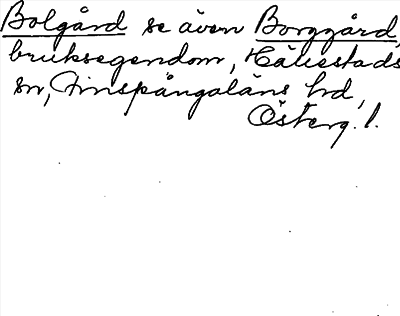 Bolgård se även Borggård,
bruksegendom, Hällestads
sn, Finspångaläns hd,
Österg. l.